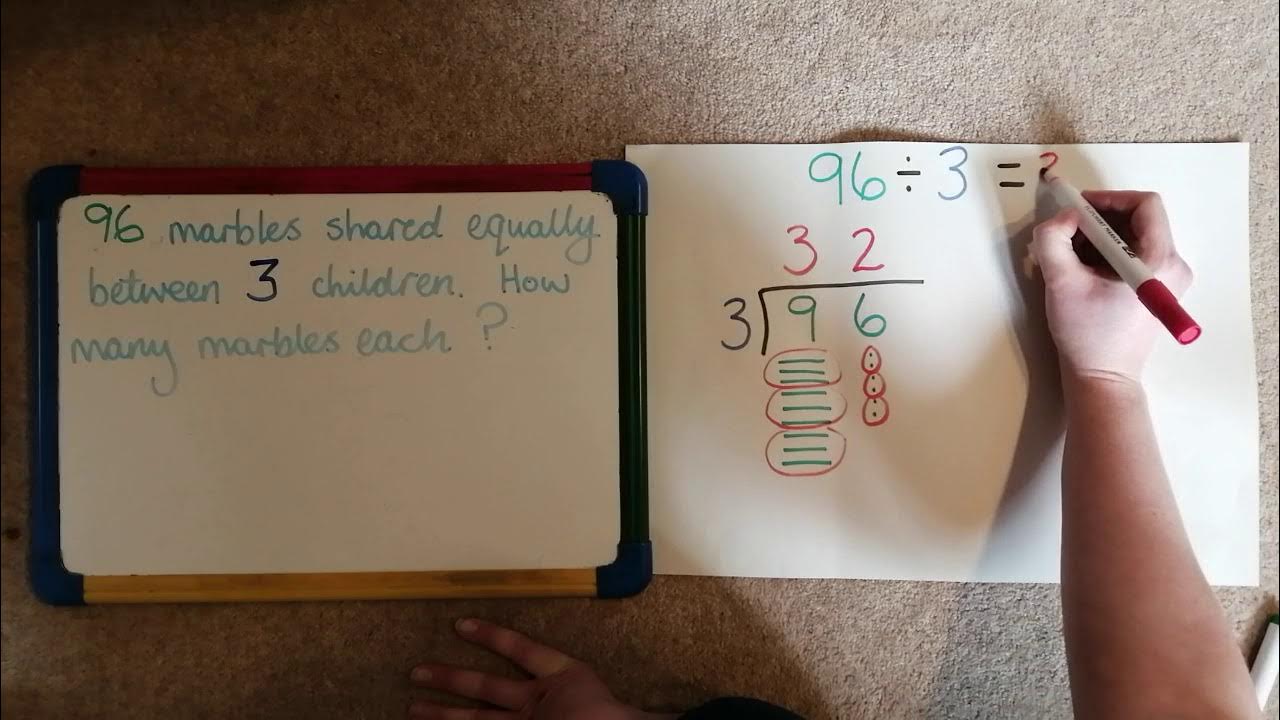 96 marbles shared equally
between 3 children. How
many marbles each ?
96 ÷ 3 =
3 2
3 9 6